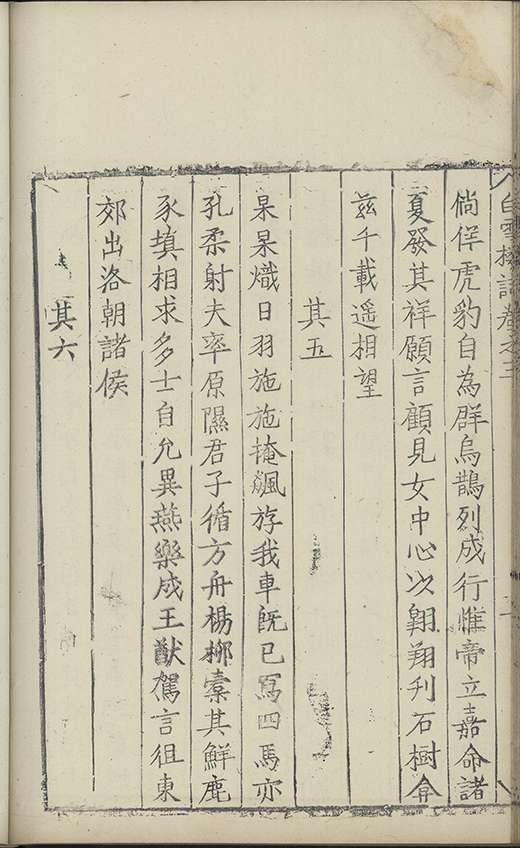 白雪樓詩卷之三
倘佯虎豹自為群烏鵲列成行惟帝立嘉命諸
夏發其祥願言顧見女中心以翱翔刋石樹弇
玆千載遥相望
其五
杲杲熾日羽施施掩颻斿我車旣已寫四馬亦
孔柔射夫率原隰君子循方舟楊栁橐其鮮鹿
豕填相求多士自允異燕樂成王猷駕言徂東
郊出洛朝諸侯
其六